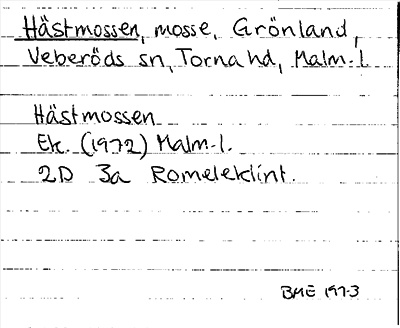 Hästmossen, mosse, Grönland,
Veberöds sn, Torna hd, Malm.l.
Hästmossen
Ek. (1972) Malm.l.
2D 3a Romeleklint.
BME 1973